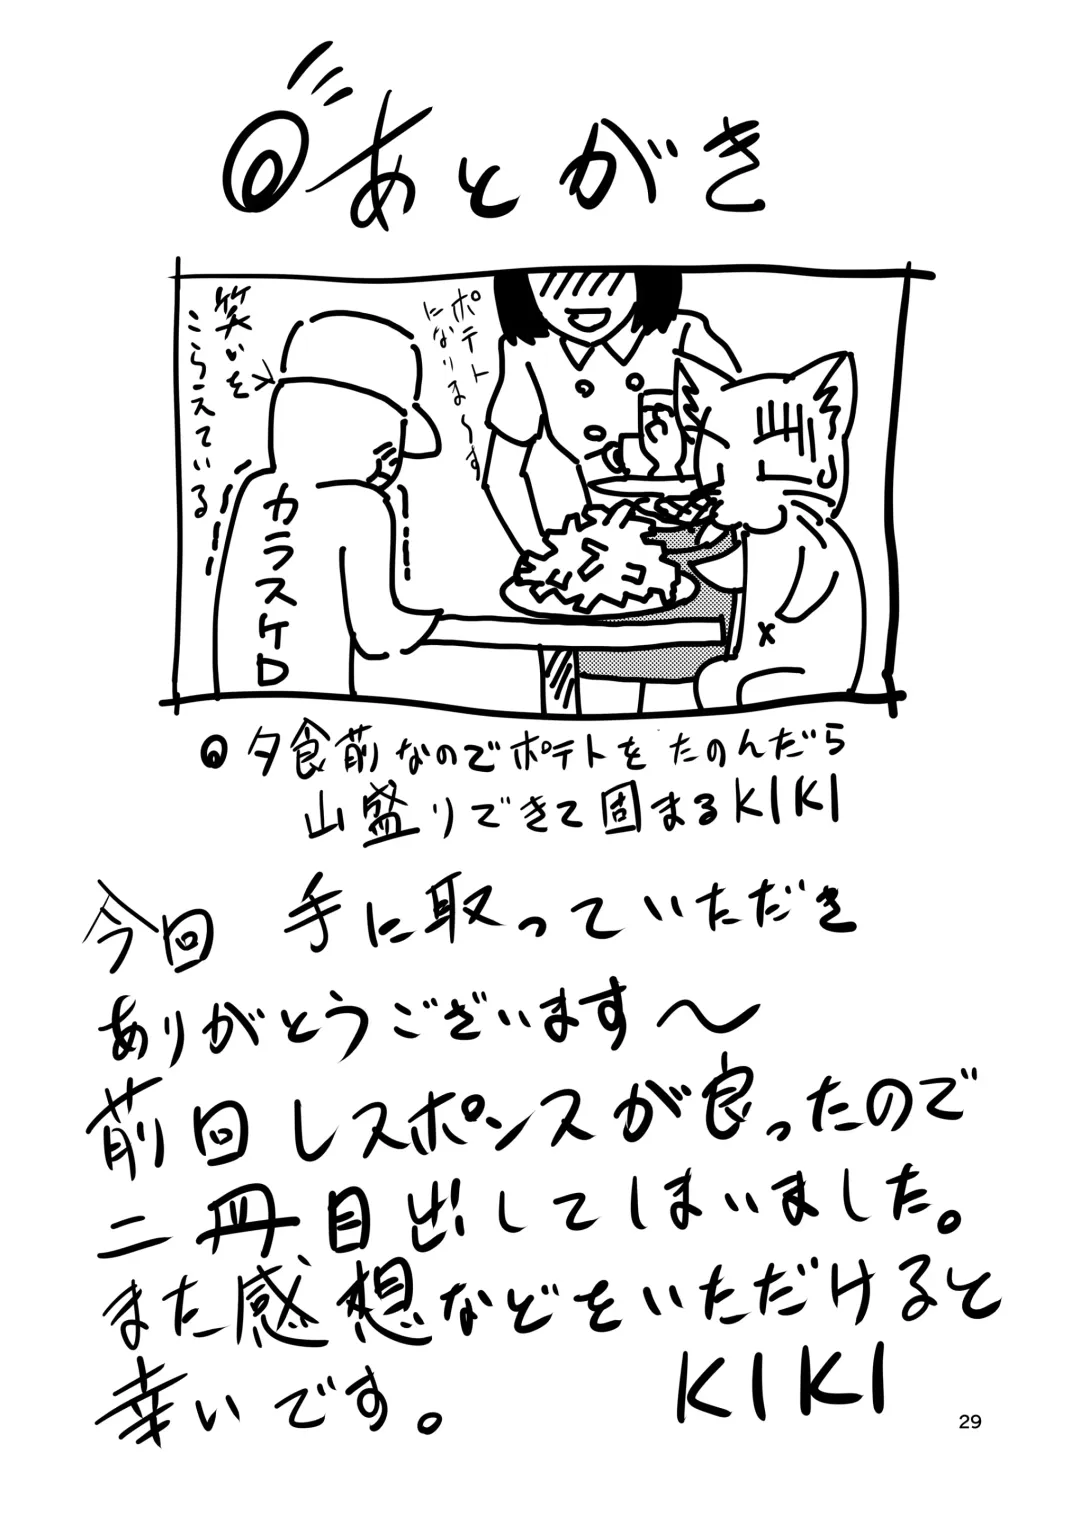 あとがき
ポテト
になりま〜す
笑いを
こらえている
カラスケD
夕食前なのでポテトをたのんだら
山盛りできて固まるKIKI
今回 手に取っていただき
ありがとうございます〜
前回レスポンスが良ったので
二冊目出してしまいました。
また感想などをいただけると
幸いです。 KIKI
29